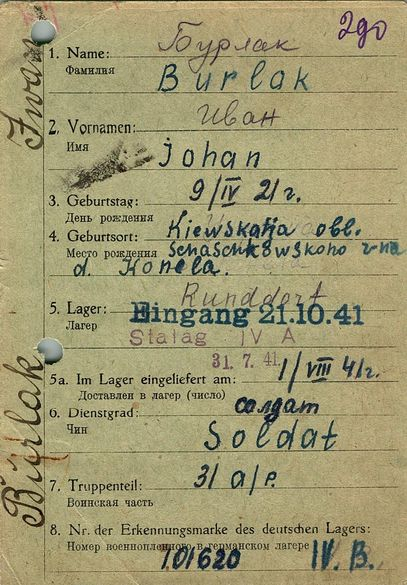 Бурлак
1. Name:
Фамилия
Burlak
Иван
2. Vornamen:
Имя
Johan
3. Geburtstag: 9/IV 21 г.
День рождения
4. Geburtsort: Kiewskaja obl.
Место рождения Schaschkowskoho r-na
d. Konela.
5. Lager:
Лагерь
Eingang 21.10.41
Stalag IV A
31. 7. 41
5a. Im Lager eingeliefert am: 1/VIII 41 г.
Доставлен в лагерь (число)
6. Dienstgrad: солдат
Чин
Soldat
7. Truppenteil: 31 а/р.
Воинская часть
8. Nr. der Erkennungsmarke des deutschen Lagers:
Номер военнопленного в германском лагере
101620 IV. B.
Burlak
Iwan